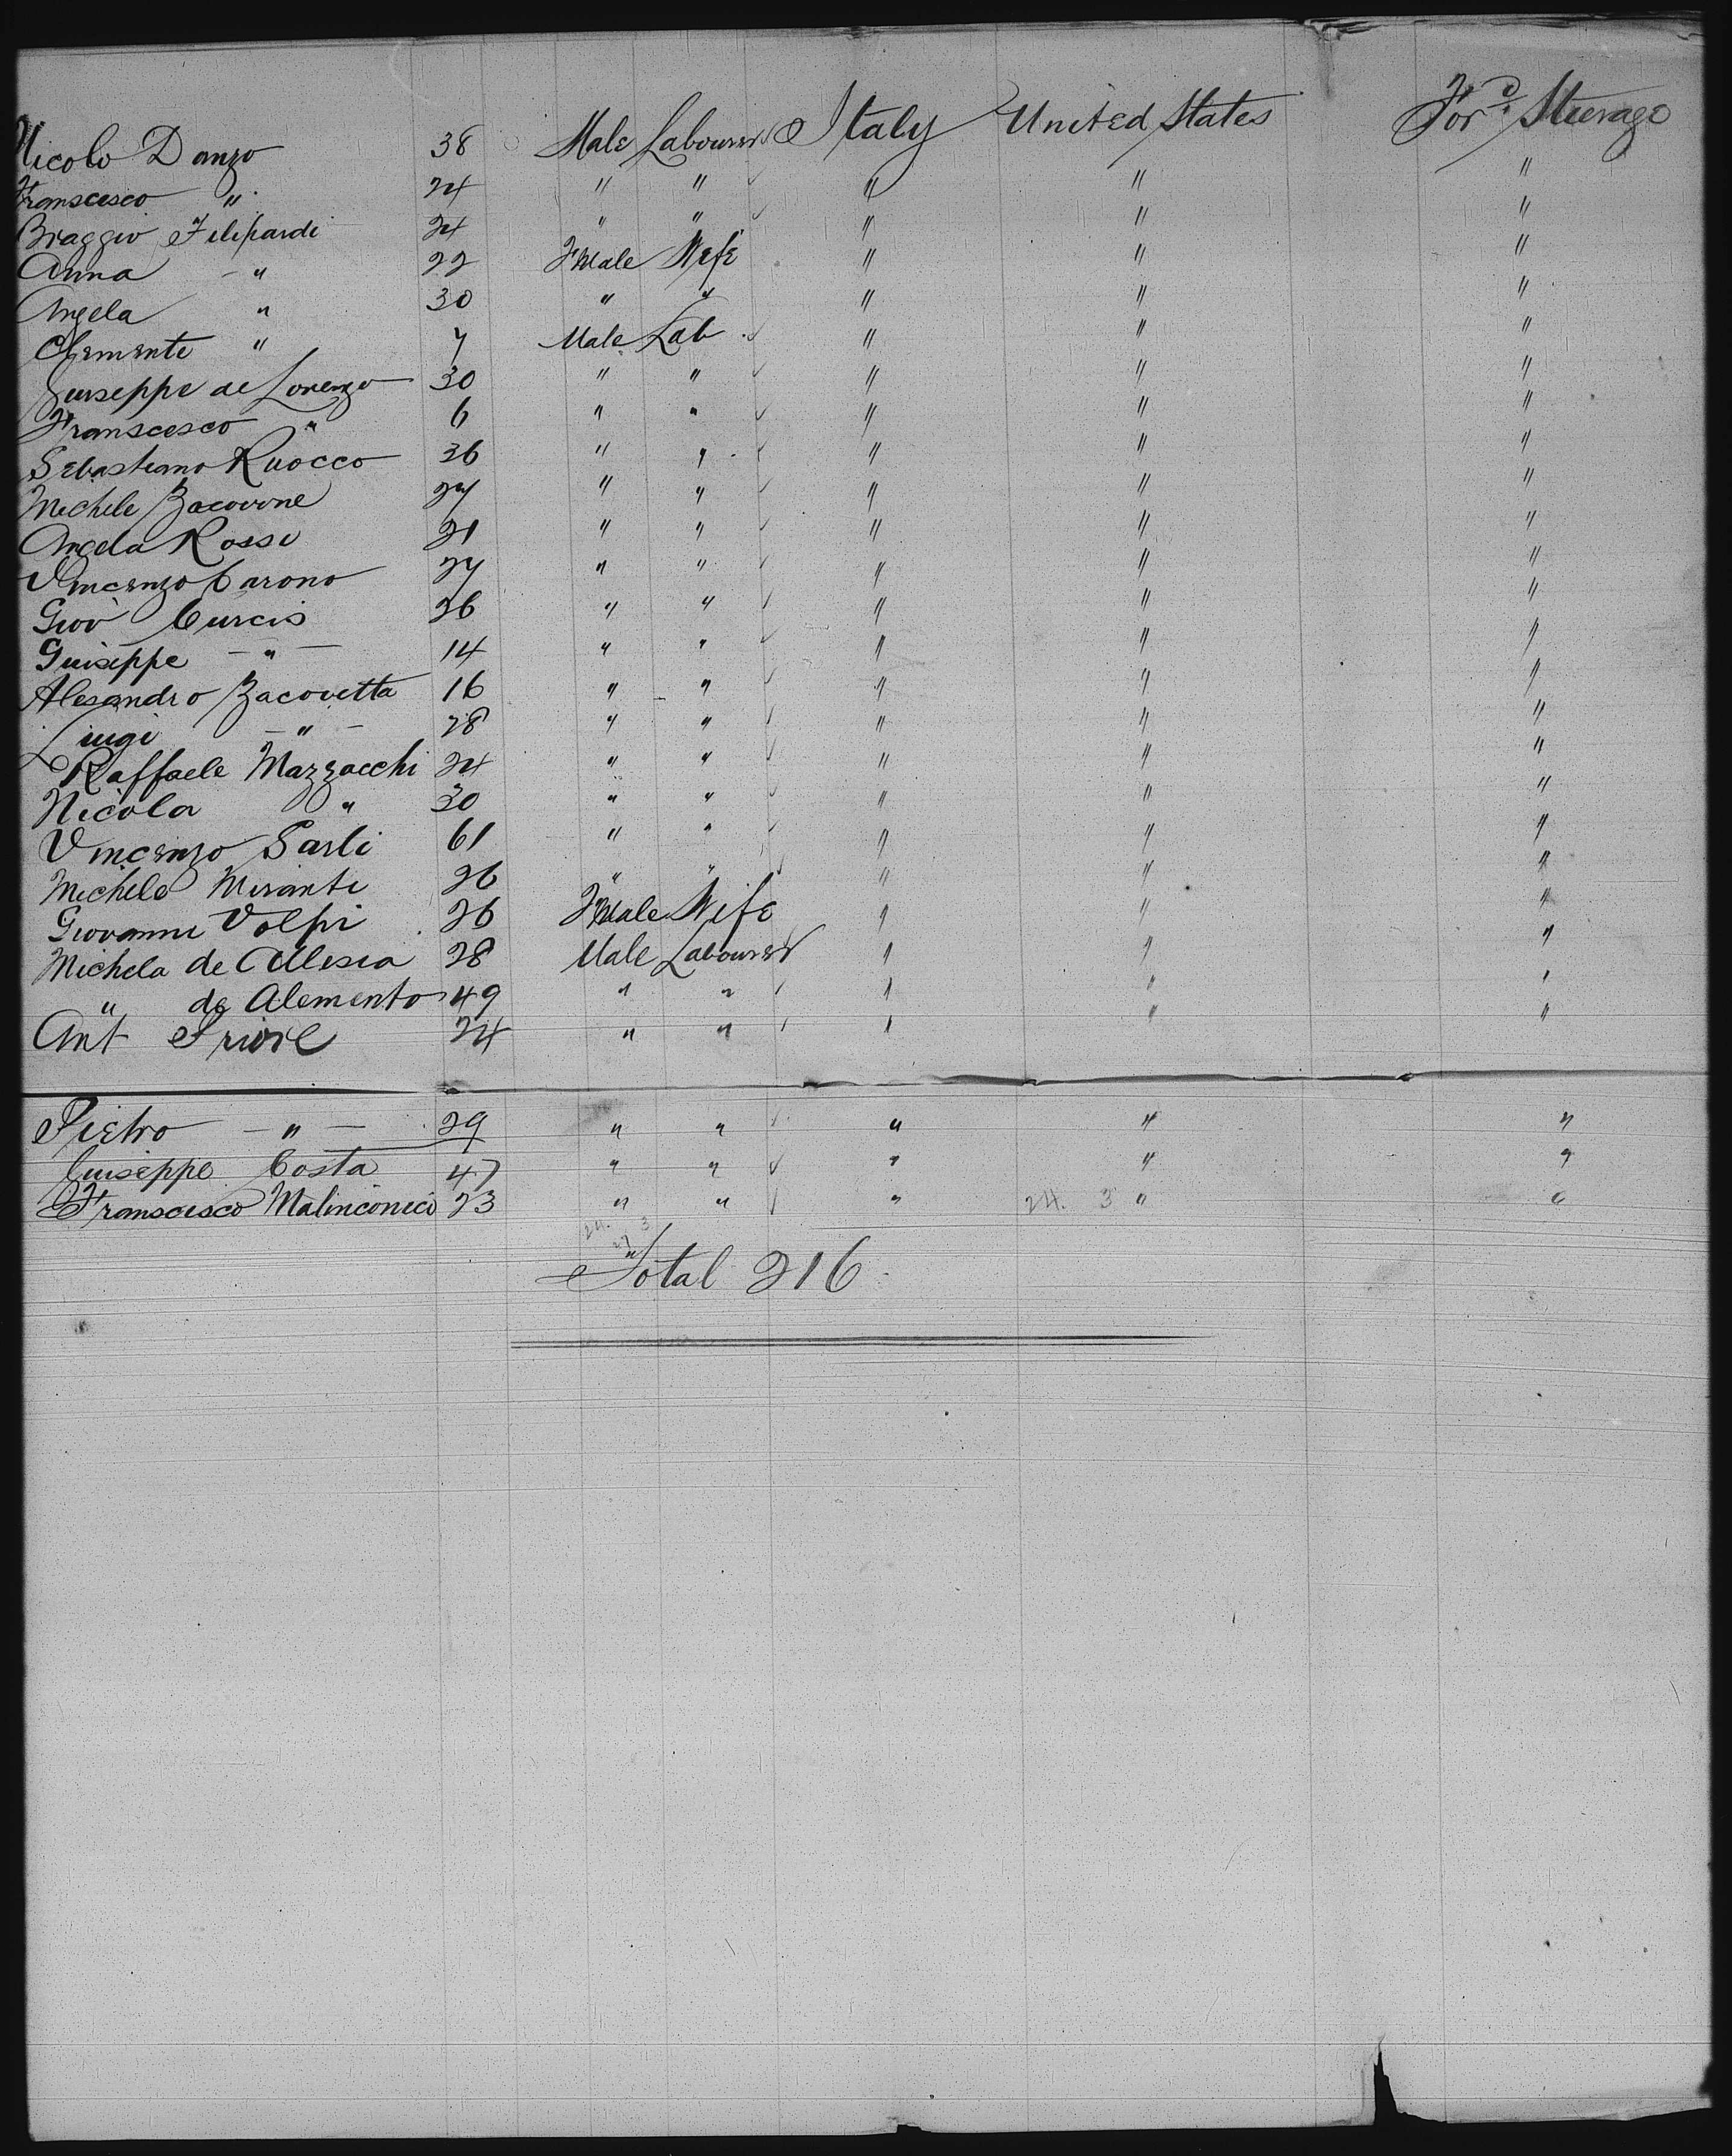 Nicolo Danzo 38 Male Labourer Italy United States For.d Steerage
Franscesco " 24 " " " " "
Braggio Filipardi 24 " " " " "
Anna - " 22 Fmale Wife " " "
Angela " 30 " " " " "
Clemente " 7 Male Lab " " "
Guiseppe de Lorenzo 30 " " " " "
Franscesco " 6 " " " " "
Sebastiano Ruocco 36 " " " " "
Michele Zacovone 27 " " " " "
Angela Rossi 21 " " " " "
Vincenzo Carono 27 " " " " "
Giov Curcis 26 " " " " "
Guiseppe - " - 14 " " " " "
Alesandro Zacovetta 16 " " " " "
Luigi - " - 28 " " " " "
Raffaele Mazzacchi 24 " " " " "
Nicola " 30 " " " " "
Vincenzo Sarli 61 " " " " "
Michele Miranti 26 " " " " "
Giovanni Volpi 26 Fmale Wife " " "
Michela de Allesia 28 Male Labourer " " "
" de Alemento 49 " " " " "
Ant Friore 24 " " " " "
Pietro - " - 29 " " " " "
Guiseppe Costa 47 " " " " "
Franscesco Malinconico 23 " " " 24. 3 " "
24. 3
27
Total 216